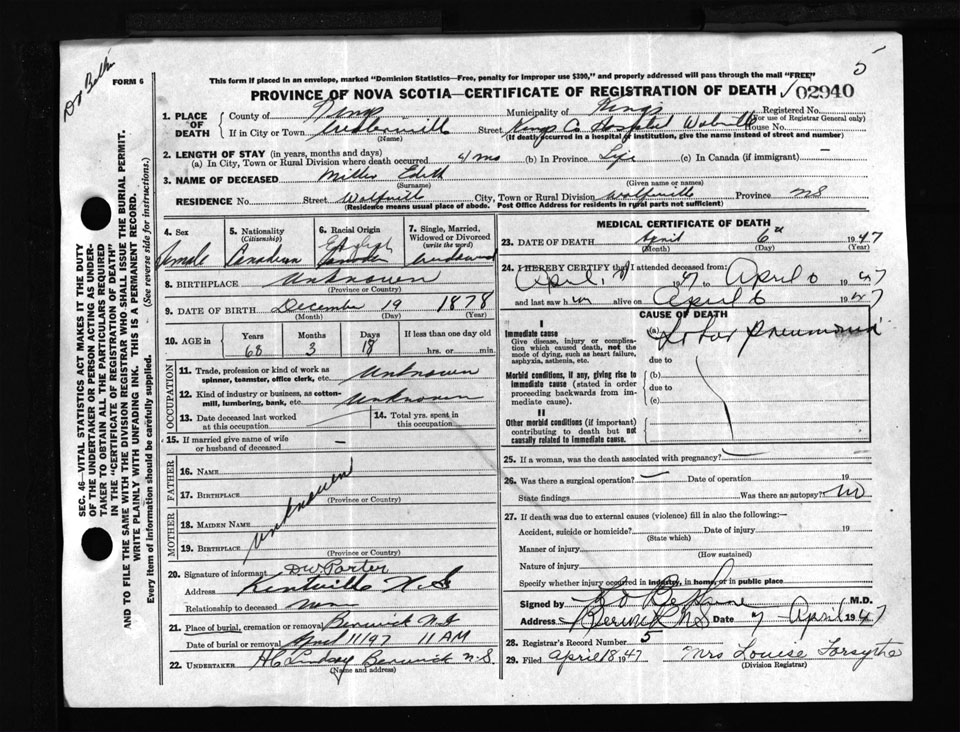 FORM 6
This form if placed in an envelope, marked "Dominion Statistics—Free, penalty for improper use $300," and properly addressed will pass through the mail "FREE"
PROVINCE OF NOVA SCOTIA—CERTIFICATE OF REGISTRATION OF DEATH 02940
SEC. 46—VITAL STATISTICS ACT MAKES IT THE DUTY
OF THE UNDERTAKER OR PERSON ACTING AS UNDER-
TAKER TO OBTAIN ALL THE PARTICULARS REQUIRED
IN THE "CERTIFICATE OF REGISTRATION OF DEATH"
AND TO FILE THE SAME WITH THE DIVISION REGISTRAR WHO SHALL ISSUE THE BURIAL PERMIT.
WRITE PLAINLY WITH UNFADING INK. THIS IS A PERMANENT RECORD.
Every item of Information should be carefully supplied. (See reverse side for instructions.)
1. PLACE OF DEATH
County of Kings Municipality of Kings Registered No.
(For use of Registrar General only)
If in City or Town Street Kings Co Hospital House No.
(Name) (If death occurred in a hospital or institution, give the name instead of street and number)
2. LENGTH OF STAY (in years, months and days)
(a) In City, Town or Rural Division where death occurred 4 mo (b) In Province Life (c) In Canada (if immigrant) —
3. NAME OF DECEASED Miller
(Surname) (Given name or names)
RESIDENCE No. Street Wolfville City, Town or Rural Division Wolfville Province NS
(Residence means usual place of abode. Post Office Address for residents in rural parts not sufficient)
4. Sex Female
5. Nationality (Citizenship) Canadian
6. Racial Origin English
7. Single, Married, Widowed or Divorced (write the word)
8. BIRTHPLACE Unknown
(Province or Country)
9. DATE OF BIRTH December 19 1878
(Month) (Day) (Year)
10. AGE in Years 68 Months 3 Days 18 If less than one day old
hrs. or min.
OCCUPATION
11. Trade, profession or kind of work as
spinner, teamster, office clerk, etc. Unknown
12. Kind of industry or business, as cotton-
mill, lumbering, bank, etc. Unknown
13. Date deceased last worked
at this occupation
14. Total yrs. spent in
this occupation
15. If married give name of wife
or husband of deceased —
FATHER
16. NAME
17. BIRTHPLACE
(Province or Country)
unknown
MOTHER
18. MAIDEN NAME
19. BIRTHPLACE
(Province or Country)
20. Signature of informant DW Porter
Address Kentville N.S
Relationship to deceased
21. Place of burial, cremation or removal Berwick N.S
Date of burial or removal April 11/47 11 AM
22. UNDERTAKER Lindsay Berwick N.S.
(Name and address)
MEDICAL CERTIFICATE OF DEATH
23. DATE OF DEATH April 6th 1947
(Month) (Day)
24. I HEREBY CERTIFY that I attended deceased from:
April
and last saw h alive on April 6 1947
CAUSE OF DEATH
I
Immediate cause
Give disease, injury or complica-
tion which caused death, not the
mode of dying, such as heart failure,
asphyxia, asthenia, etc.
(a) Lobar Pneumonia
due to
Morbid conditions, if any, giving rise to
immediate cause (stated in order
proceeding backwards from im-
mediate cause).
(b)
due to
(c)
II
Other morbid conditions (if important)
contributing to death but not
causally related to immediate cause.
25. If a woman, was the death associated with pregnancy? —
26. Was there a surgical operation? — Date of operation 19
State findings Was there an autopsy? no
27. If death was due to external causes (violence) fill in also the following:
Accident, suicide or homicide? Date of injury 19
(State which)
Manner of injury
(How sustained)
Nature of injury
Specify whether injury occurred in industry, in home, or in public place
Signed by M.D.
Address Berwick NS Date 7 April 1947
28. Registrar's Record Number 5
29. Filed April 18 1947 Mrs Louise Forsythe
(Division Registrar)